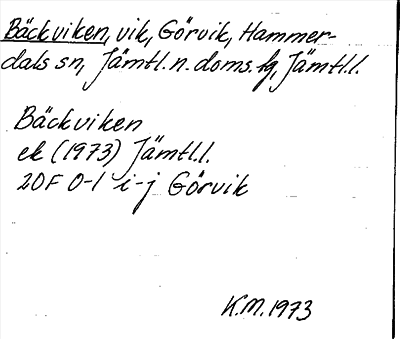 Bäckviken, vik, Görvik, Hammer-
dals sn, Jämtl. n. doms. hg, Jämtl.l.
Bäckviken
ek (1973) Jämtl.l.
20F 0-1 i-j Görvik
K.M. 1973